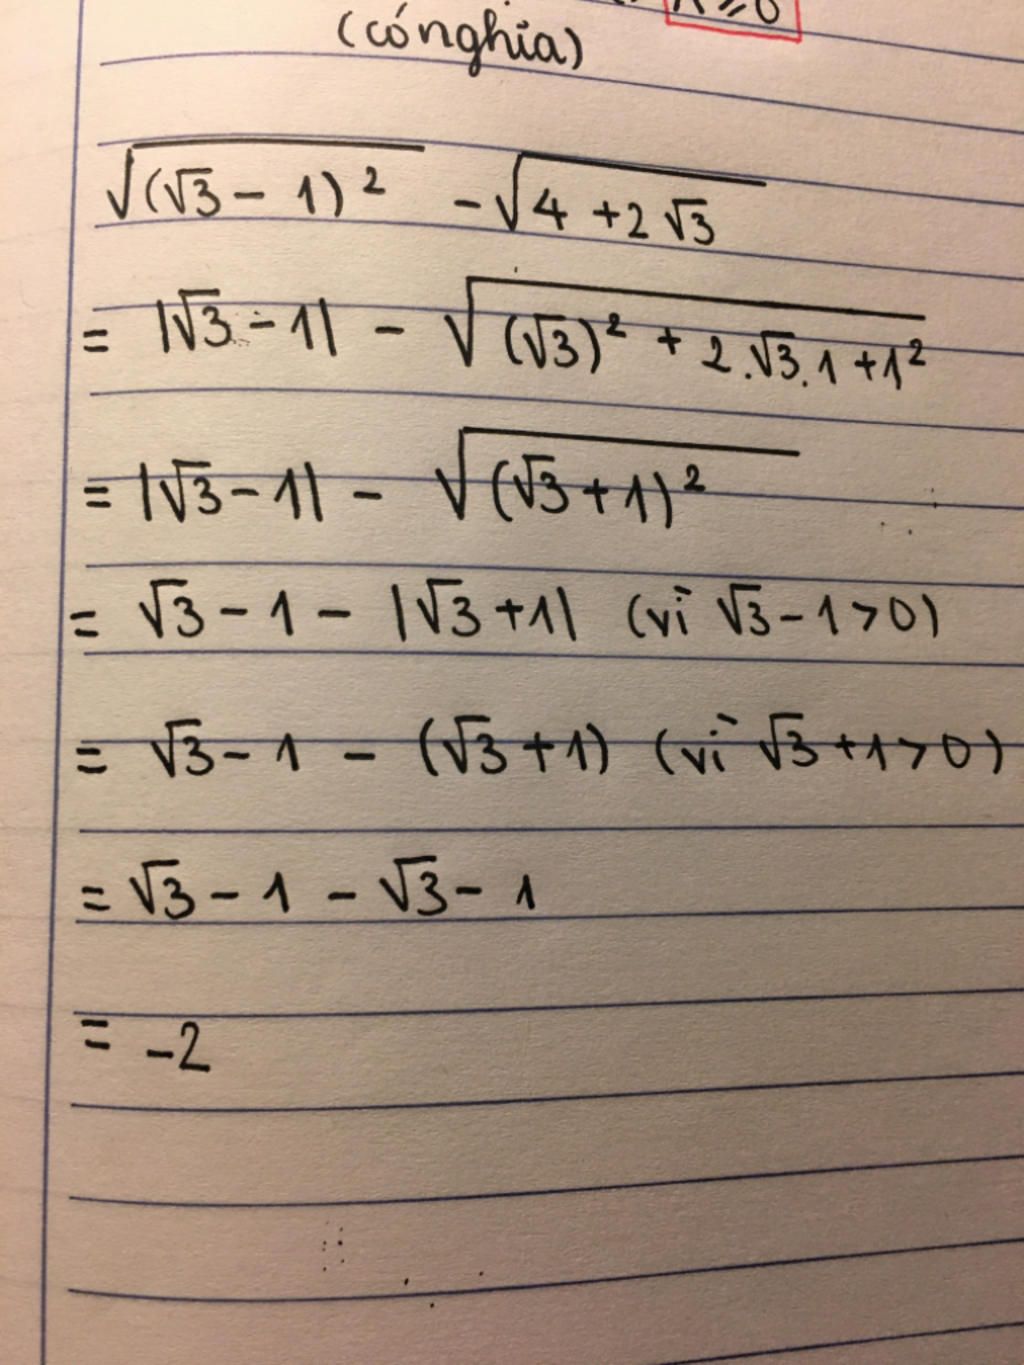 ≥ 0
(có nghĩa)
√(√3 - 1)² - √4 + 2√3
= |√3 - 1| - √(√3)² + 2.√3.1 + 1²
= |√3 - 1| - √(√3 + 1)²
= √3 - 1 - |√3 + 1| (vì √3 - 1 > 0)
= √3 - 1 - (√3 + 1) (vì √3 + 1 > 0)
= √3 - 1 - √3 - 1
= -2